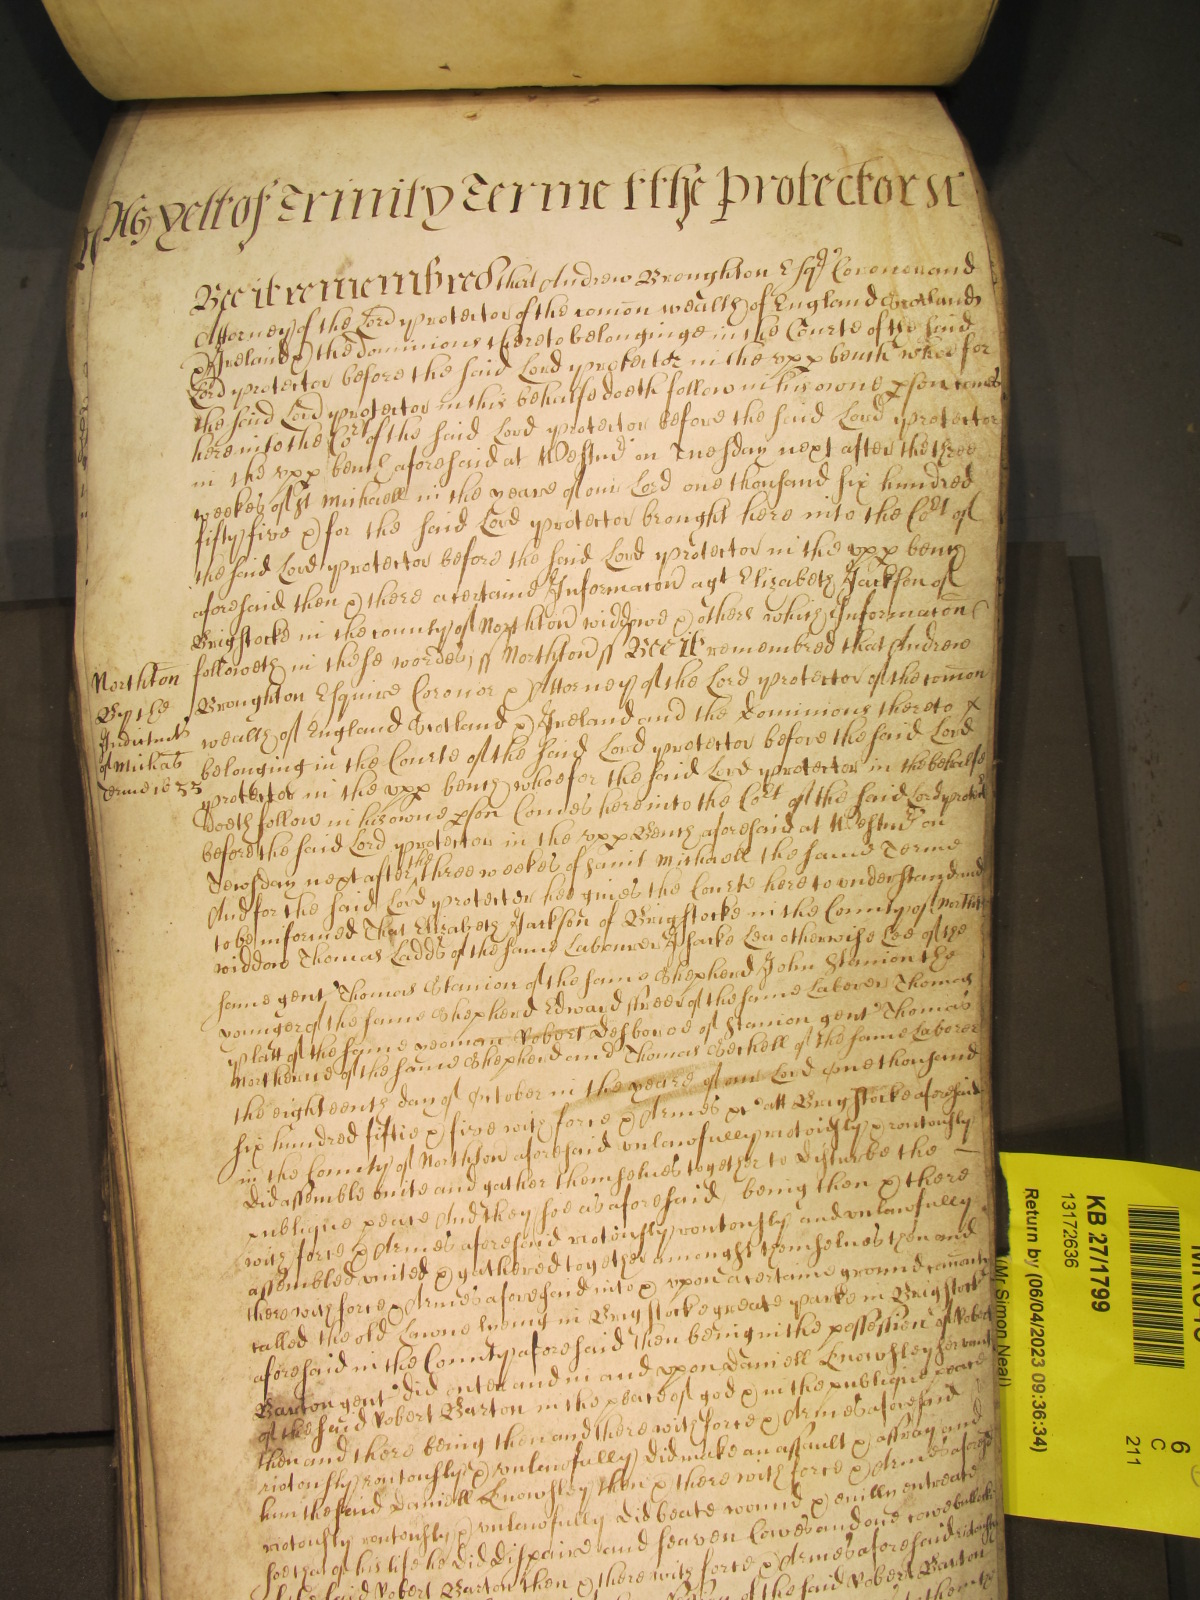 As yett of Trinity Terme the Protector
Bee it remembred that Andrew Broughton Esqr Coronor and
Attorney of the Lord protector of the comon wealth of England Scotland
& Ireland & the Dominions thereto belonginge in the Courte of the said
Lord protector before the said Lord protector in the upp bench whoe for
the said Lord protector in this behalfe doeth follow in his owne pson comes
here into the Cort of the said Lord protector before the said Lord protector
in the upp bench aforesaid at Westmr on Tuesday next after the three
weekes of St Michaell in the yeare of our Lord one thousand six hundred
fifty five & for the said Lord protector brought here into the Cort of
the said Lord protector before the said Lord protector in the upp bench
aforesaid then & there a certaine Informacon agt Elizabeth Jackson of
Brigstocke in the county of Northton widdowe & others which Informacon
followeth in these wordes ss Northton ss Bee it remembred that Andrew
Northton
By the
Indictmts
of Michas
Terme 1655
Broughton Esquire Coronor & Attorney of the Lord protector of the comon
wealth of England Scotland & Ireland and the Dominions thereto
belonging in the Courte of the said Lord protector before the said Lord
protector in the upp bench whoe for the said Lord protector in the behalfe
doeth follow in his owne pson Comes here into the Cort of the said Lord protector
before the said Lord protector in the upp Bench aforesaid at Westmr on
Tewsday next after the three weekes of saint Michaell the same Terme
And for the said Lord protector hee gives the Courte here to understand and
to be informed That Elizabeth Jackson of Brigstocke in the County of Northton
widdow Thomas Ladds of the same Labourer Isacke Lea otherwise Lee of the
same gent Thomas Stanion of the same Shepherd John Stanion the
younger of the same Shepherd Edward Streer of the same Laborer Thomas
Platt of the same yeoman Robert Desboroe of Stanion gent Thomas
Northerne of the same Shepherd and Thomas Beckell of the same Laborer
the eighteenth day of October in the yeare of our Lord one thousand
six hundred fiftie & five with force & Armes &c att Brigstocke aforesaid
in the County of Northton aforesaid unlawfully riotously & routously
did assemble unite and gather themselves together to disturbe the
publique peace And they soe as aforesaid being then & there
with force & Armes aforesaid riotously routously and unlawfully
assembled united & gathered together amongst themselves then and
there with force & Armes aforesaid into & upon a certaine ground comonly
called the old Lawne lyeing in Brigstocke greate parke in Brigstock
aforesaid in the County aforesaid then being in the possession of Robert
Barton gent did enter and in and upon Daniell Knowsley servant
of the said Robert Barton in the peace of god & in the publique peace
then and there being then and there with force & Armes aforesaid
riotously routously & unlawfully did make an assault & affray and
him the said Daniell Knowsley then & there with force & Armes aforesd
riotously routously & unlawfully did beate wound & evilly entreate
soe that of his life he did dispaire and seaven Cowes and one cowe bullocke
of the said Robert Barton then & there with force & Armes aforesaid riotously
of the said Robert Barton
KB 27/1799
13172636
Return by (06/04/2023 09:36:34)
(Mr Simon Neal)
6
C
211